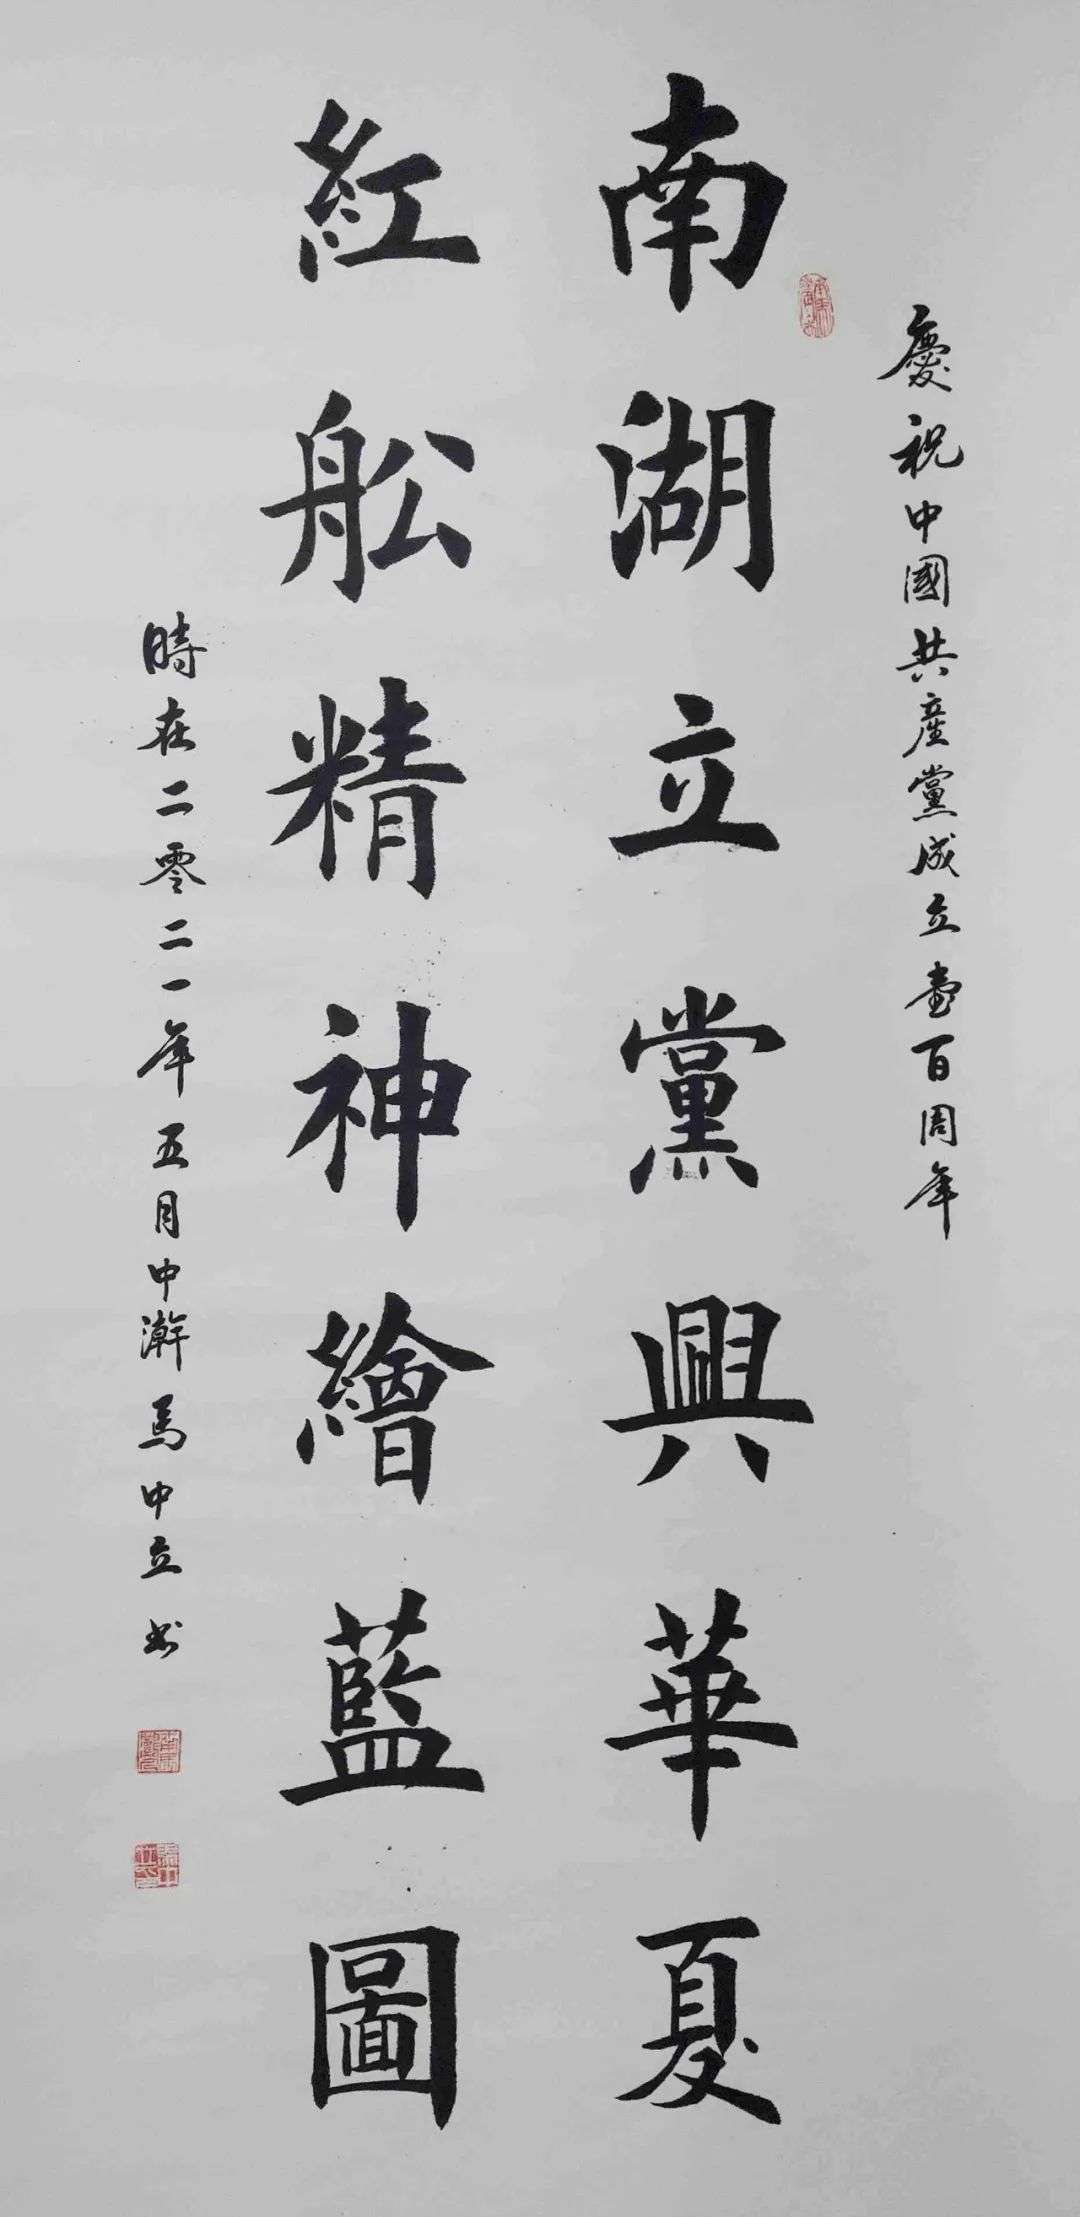 慶祝中國共產黨成立壹百周年
南湖立黨興華夏
紅舩精神繪藍圖
時在二零二一年五月中瀚馬中立书